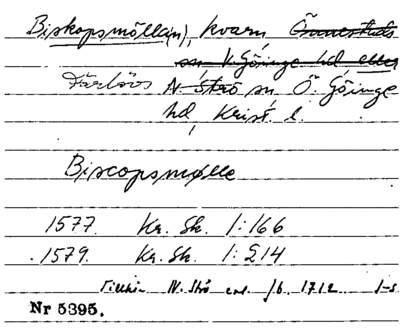 Biskopsmölla(n), kvarn Önnestads
sn V. Göinge hd eller
Färlövs N. Strö sn Ö. Göinge
hd, Krist. l.
Biscopsmølle
1577. Kr. Sk. I:166
1579. Kr. Sk. I:214
N. Strö enl. jb. 1712
Nr 5395.